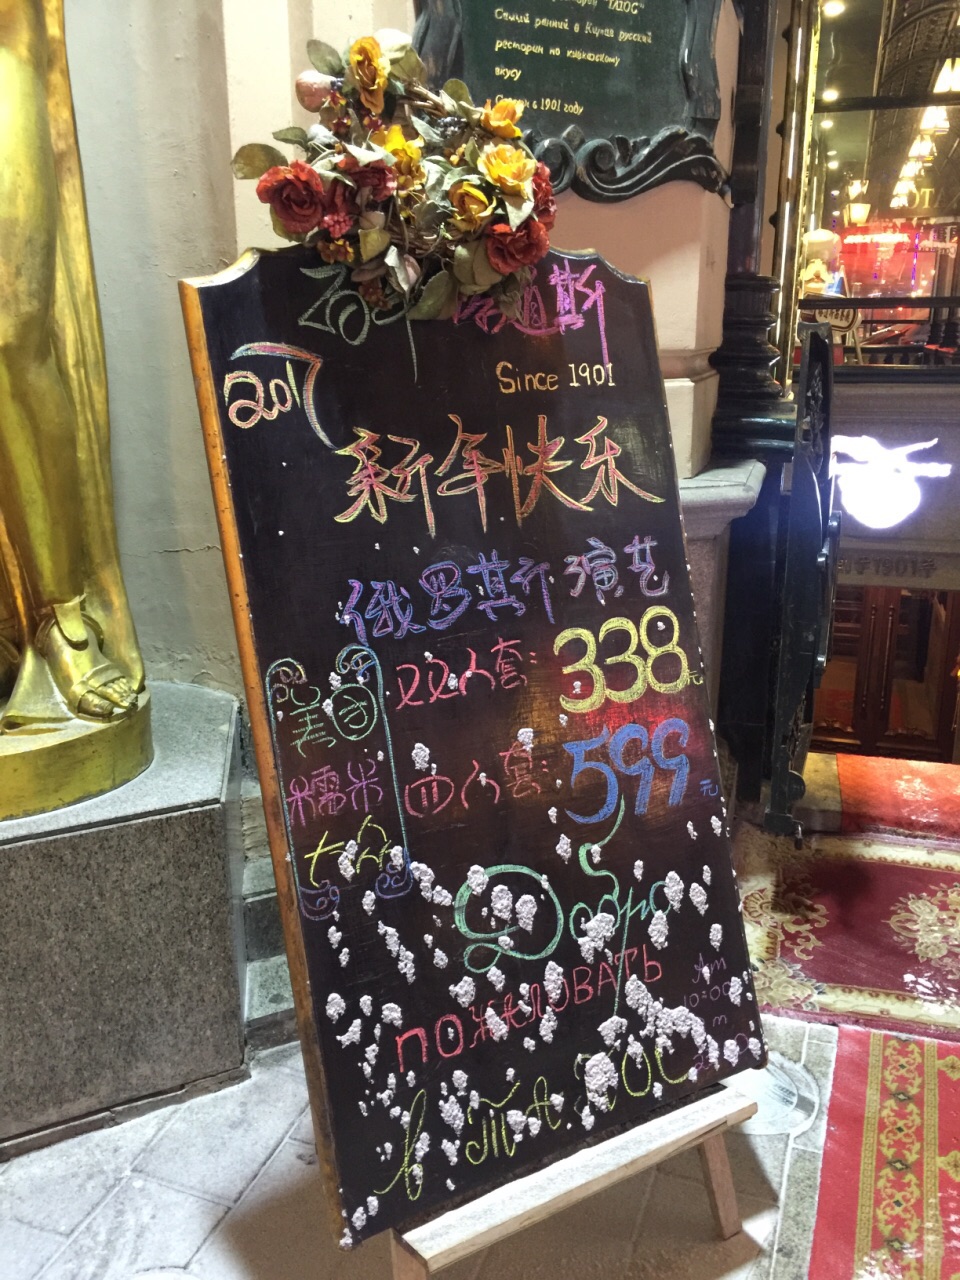 "ТАТОС"
Самый ранний в Китае русский
ресторан по кавказскому
вкусу
1901 году
2017
Since 1901
新年快乐
俄罗斯演艺
双人套: 338元
四人套: 599元
美团
糯米
大众
Добро
пожаловать
в
Am
10:00